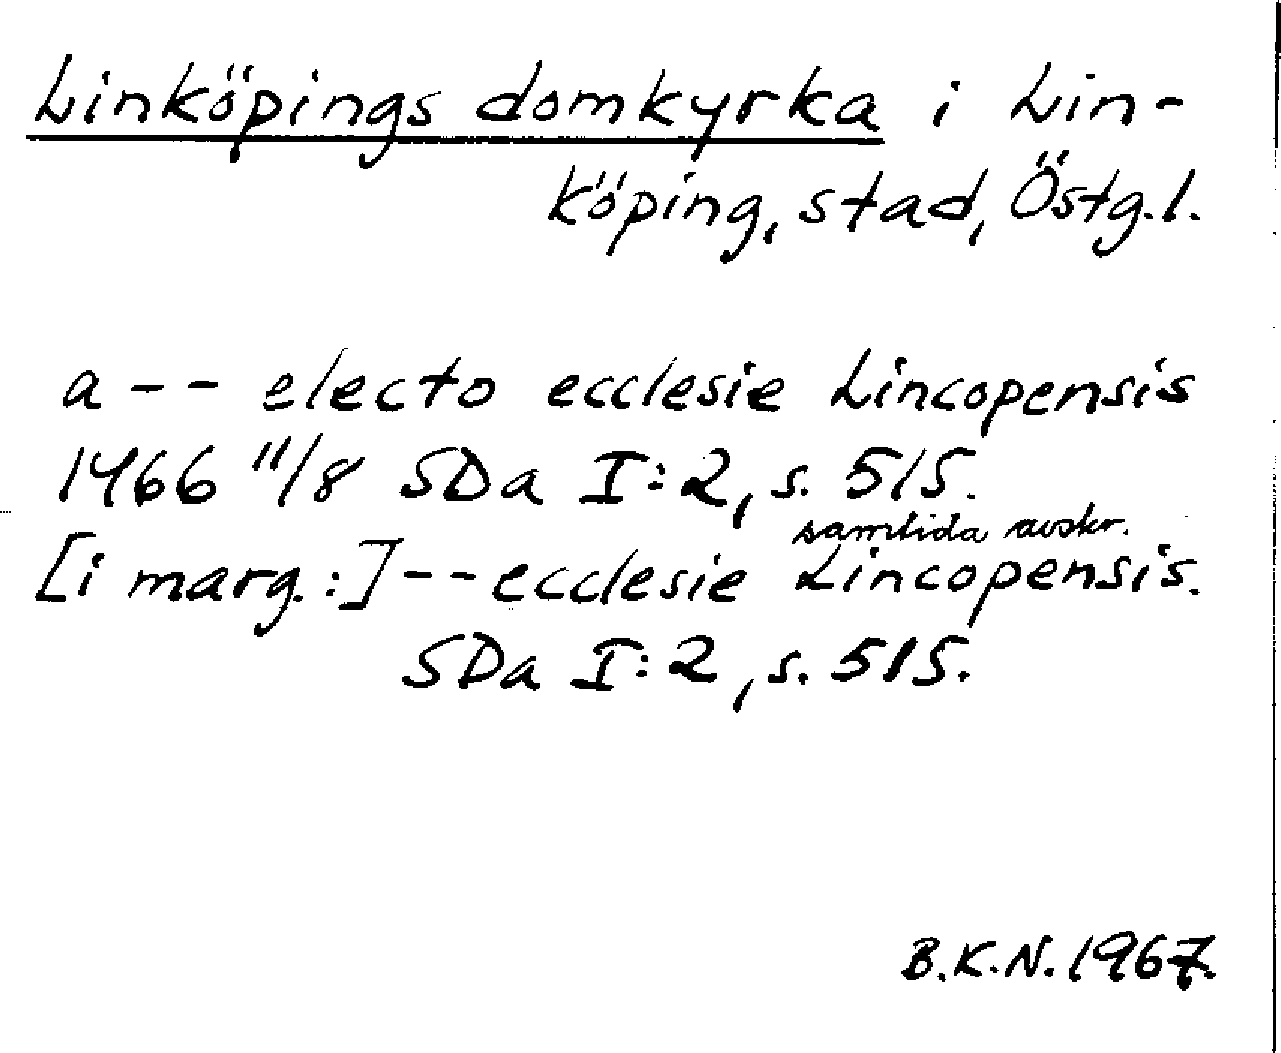 Linköpings domkyrka i Lin-
köping, stad, Östg.l.
a -- electo ecclesie Lincopensis
1466 11/8 SDa I:2, s. 515.
samtida avskr.
[i marg.:] -- ecclesie Lincopensis.
SDa I:2, s. 515.
B.K.N. 1967.